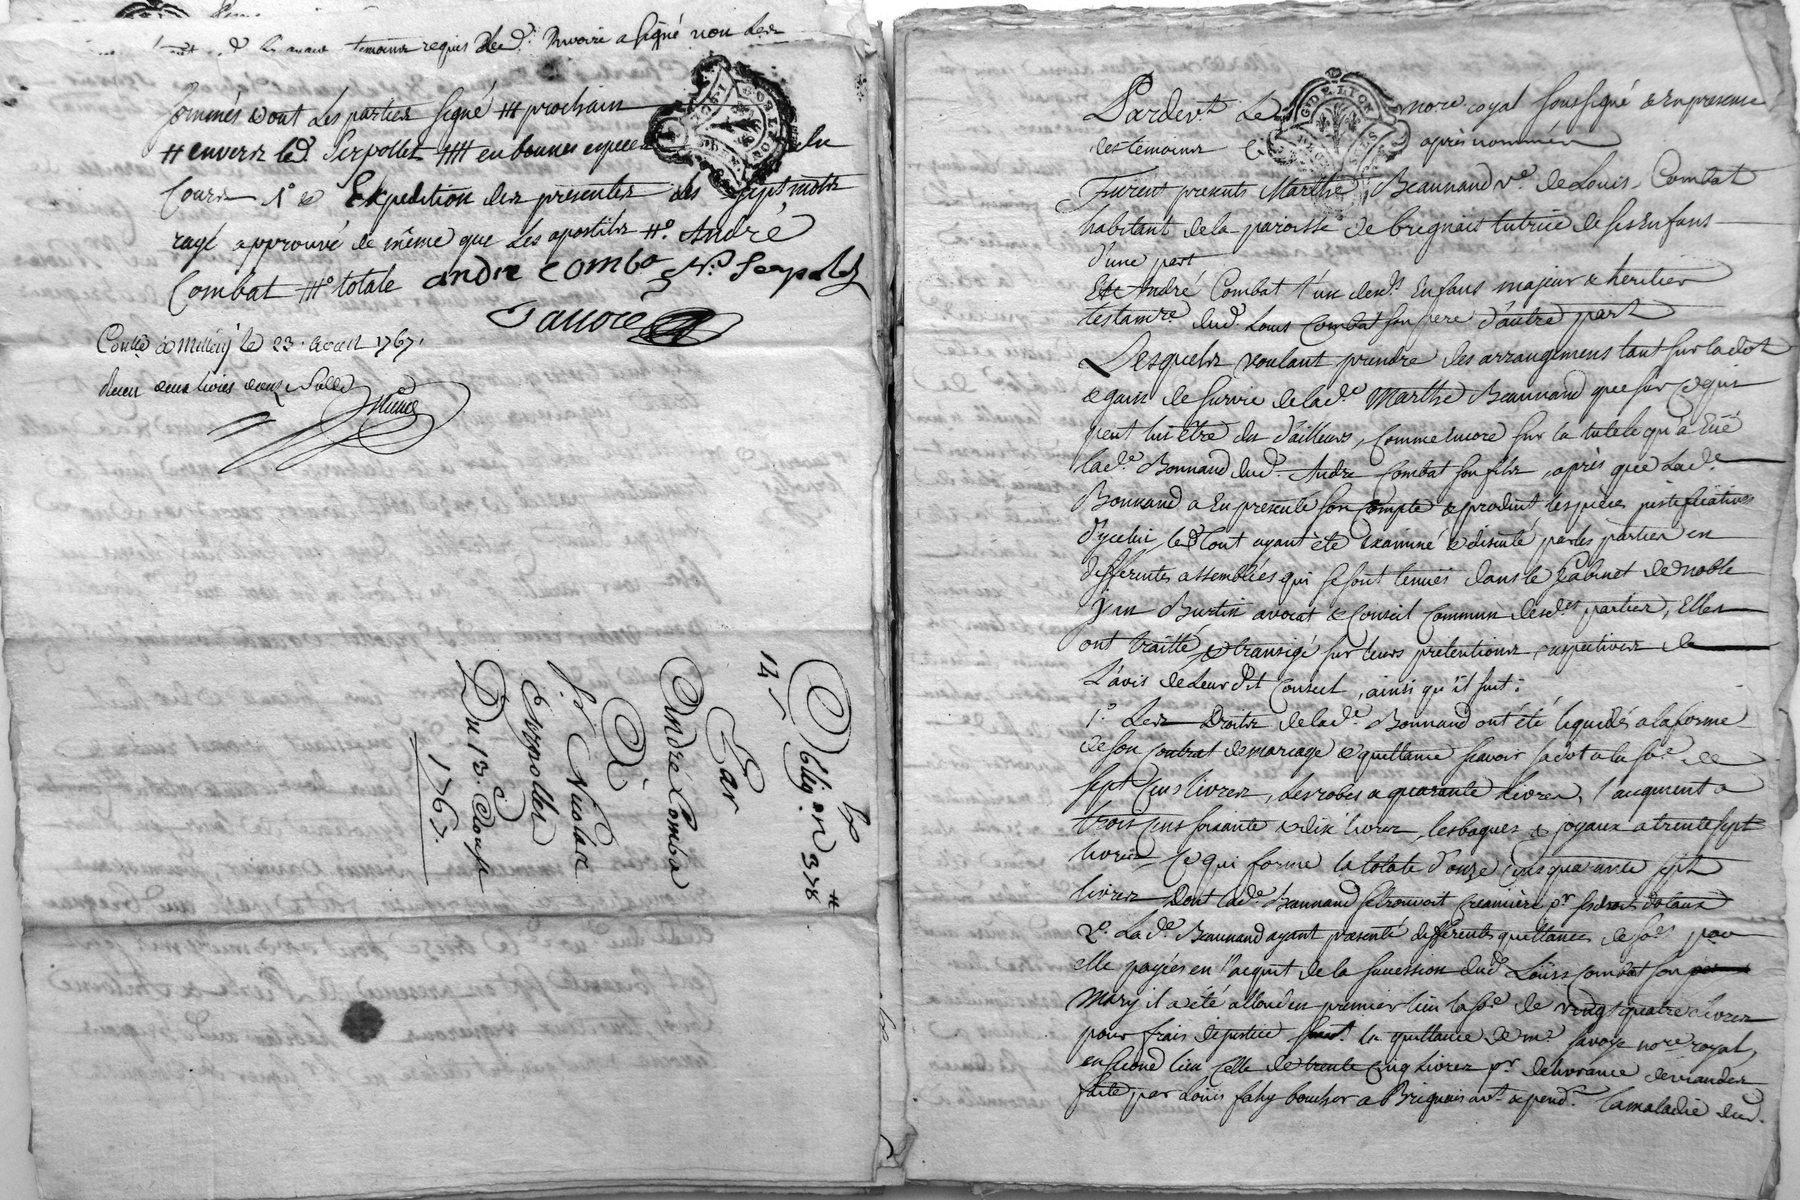 témoins requis led. a signé non les
sommés dont les parties signé # prochain
# envers led. Serpollet ## en bonnes especes du
Cours 1° & Expedition des presentes des sept mots
rayé approuvé de même que les apostiles #° André
Combat ##° totale andre comba N. Serpolet
Savoie
Contlé a Millery le 23. Aoust 1767.
Receu deux livres onze Solds
Oblig.on 378 #
14 5
Par
André Comba
A
Sr Nicolas
Serpollet
Du 13. Aoust
1767.
GDE LION
Pardevt Le nore royal soussigné & en presence
des temoins après nommés
Furent presents Marthe Beaunand ve. de Louis Combat
habitant de la paroisse de brignais tutrice de ses Enfans
d'une part
Et André Combat l'un desds. Enfans majeur & heritier
testamre. dud. Louis Combat son pere d'autre part
Lesquels voulant prendre des arrangemens tant sur la dot
& gain de survie de lade. Marthe Beaunand que sur ce qui
peut lui être du d'ailleurs, comme encore sur la tutele qu'a Eüe
lade. Bonnand dud. André Combat son fils, après que lade.
Bonnand a Eu presenté son compte & produit les pieces justificatives
d'ycelui, le tout ayant été examiné & discuté par les parties en
differentes assemblées qui se sont tenües dans le Cabinet de noble
jean Burtin avocat & Conseil commun desdes parties, Elles
ont traitté & transigé sur leurs pretentions respectives de
L'avis de Leur dit Conseil, ainsi qu'il suit:
1.° Les Droits de lade. Bonnand ont été liquidés a la forme
de son contrat de mariage & quittance scavoir sa dot a la se. de
sept cens livres, les robes a quarante Livres, l'augment a
trois cens soixante & dix livres, les bagues & joyaux a trente sept
livres Ce qui forme la totale d'onze cens quarante sept
livres Dont lade. Beaunand se trouvoit Creanciere pr. ses droits dotaux
2.° Lade. Beaunand ayant presenté differentes quittances de ses par
elle payées en l'acquit de la succession dud. Loüis Combat son
Mary il a été alloué en premier lieu la se. de vingt quatre Livres
pour frais de justice la quittance de me. Savoye nore. royal,
en second lieu celle de trente cinq Livres pr. delivrance de viandes
faite par Loüis fahy boucher a Brignais avt. & pendt. la maladie dud.